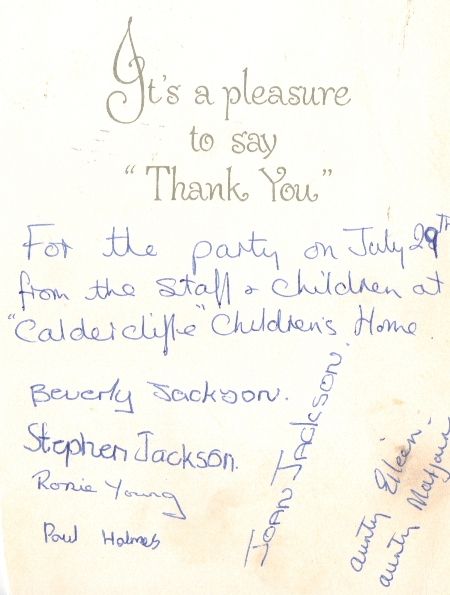 It's a pleasure
to say
"Thank You"
For the party on July 29th
from the staff & children at
"Caldercliffe" Children's Home.
Beverly Jackson.
Stephen Jackson.
Ronie Young
Paul Holmes
Joan Jackson.
aunty Eileen.
aunty